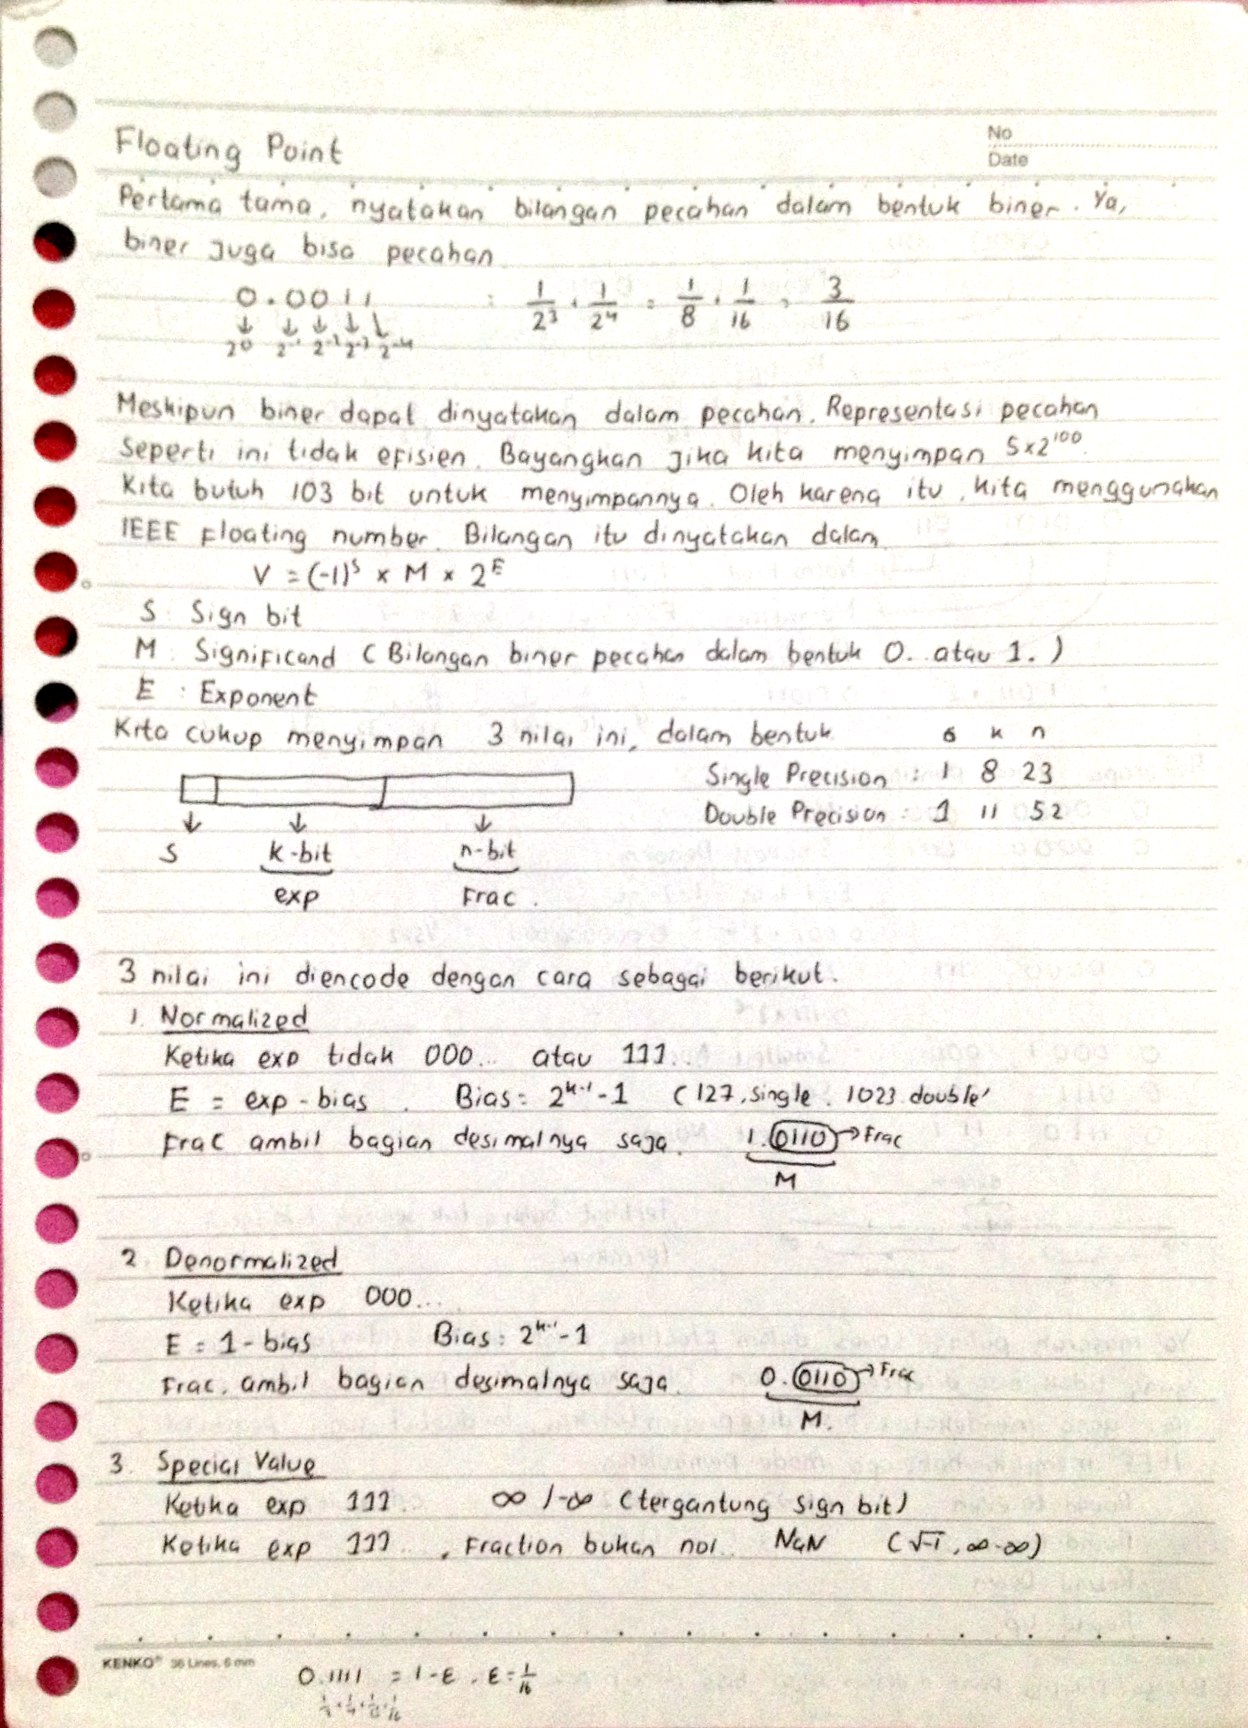 No
Date
Floating Point
Pertama tama, nyatakan bilangan pecahan dalam bentuk biner. Ya,
biner juga bisa pecahan
0.0011 : 1/2³ + 1/2⁴ = 1/8 + 1/16 = 3/16
↓ ↓ ↓ ↓ ↓
2⁰ 2⁻¹ 2⁻² 2⁻³ 2⁻⁴
Meskipun biner dapat dinyatakan dalam pecahan. Representasi pecahan
seperti ini tidak efisien. Bayangkan jika kita menyimpan 5x2¹⁰⁰.
Kita butuh 103 bit untuk menyimpannya. Oleh karena itu, kita menggunakan
IEEE Floating number. Bilangan itu dinyatakan dalam
V = (-1)ˢ × M × 2ᴱ
S : Sign bit
M : Significand (Bilangan biner pecahan dalam bentuk 0.. atau 1. )
E : Exponent
Kita cukup menyimpan 3 nilai ini, dalam bentuk
s k n
Single Precision : 1 8 23
Double Precision : 1 11 52
↓ ↓ ↓
S k-bit n-bit
exp Frac.
3 nilai ini diencode dengan cara sebagai berikut.
1. Normalized
Ketika exp tidak 000... atau 111..
E = exp - bias. Bias = 2ᵏ⁻¹-1 (127, single. 1023 double)
Frac ambil bagian desimalnya saja. 1.0110 → Frac
M
2. Denormalized
Ketika exp 000...
E = 1 - bias Bias = 2ᵏ⁻¹-1
Frac. ambil bagian desimalnya saja. 0.0110 → Frac
M.
3. Special Value
Ketika exp 111 ∞ /-∞ (tergantung sign bit)
Ketika exp 111 .., Fraction bukan nol.. NaN (√-1, ∞-∞)
KENKO® 36 Lines, 6 mm
0.1111 = 1-ε, ε = 1/16
1/2 + 1/4 + 1/8 + 1/16